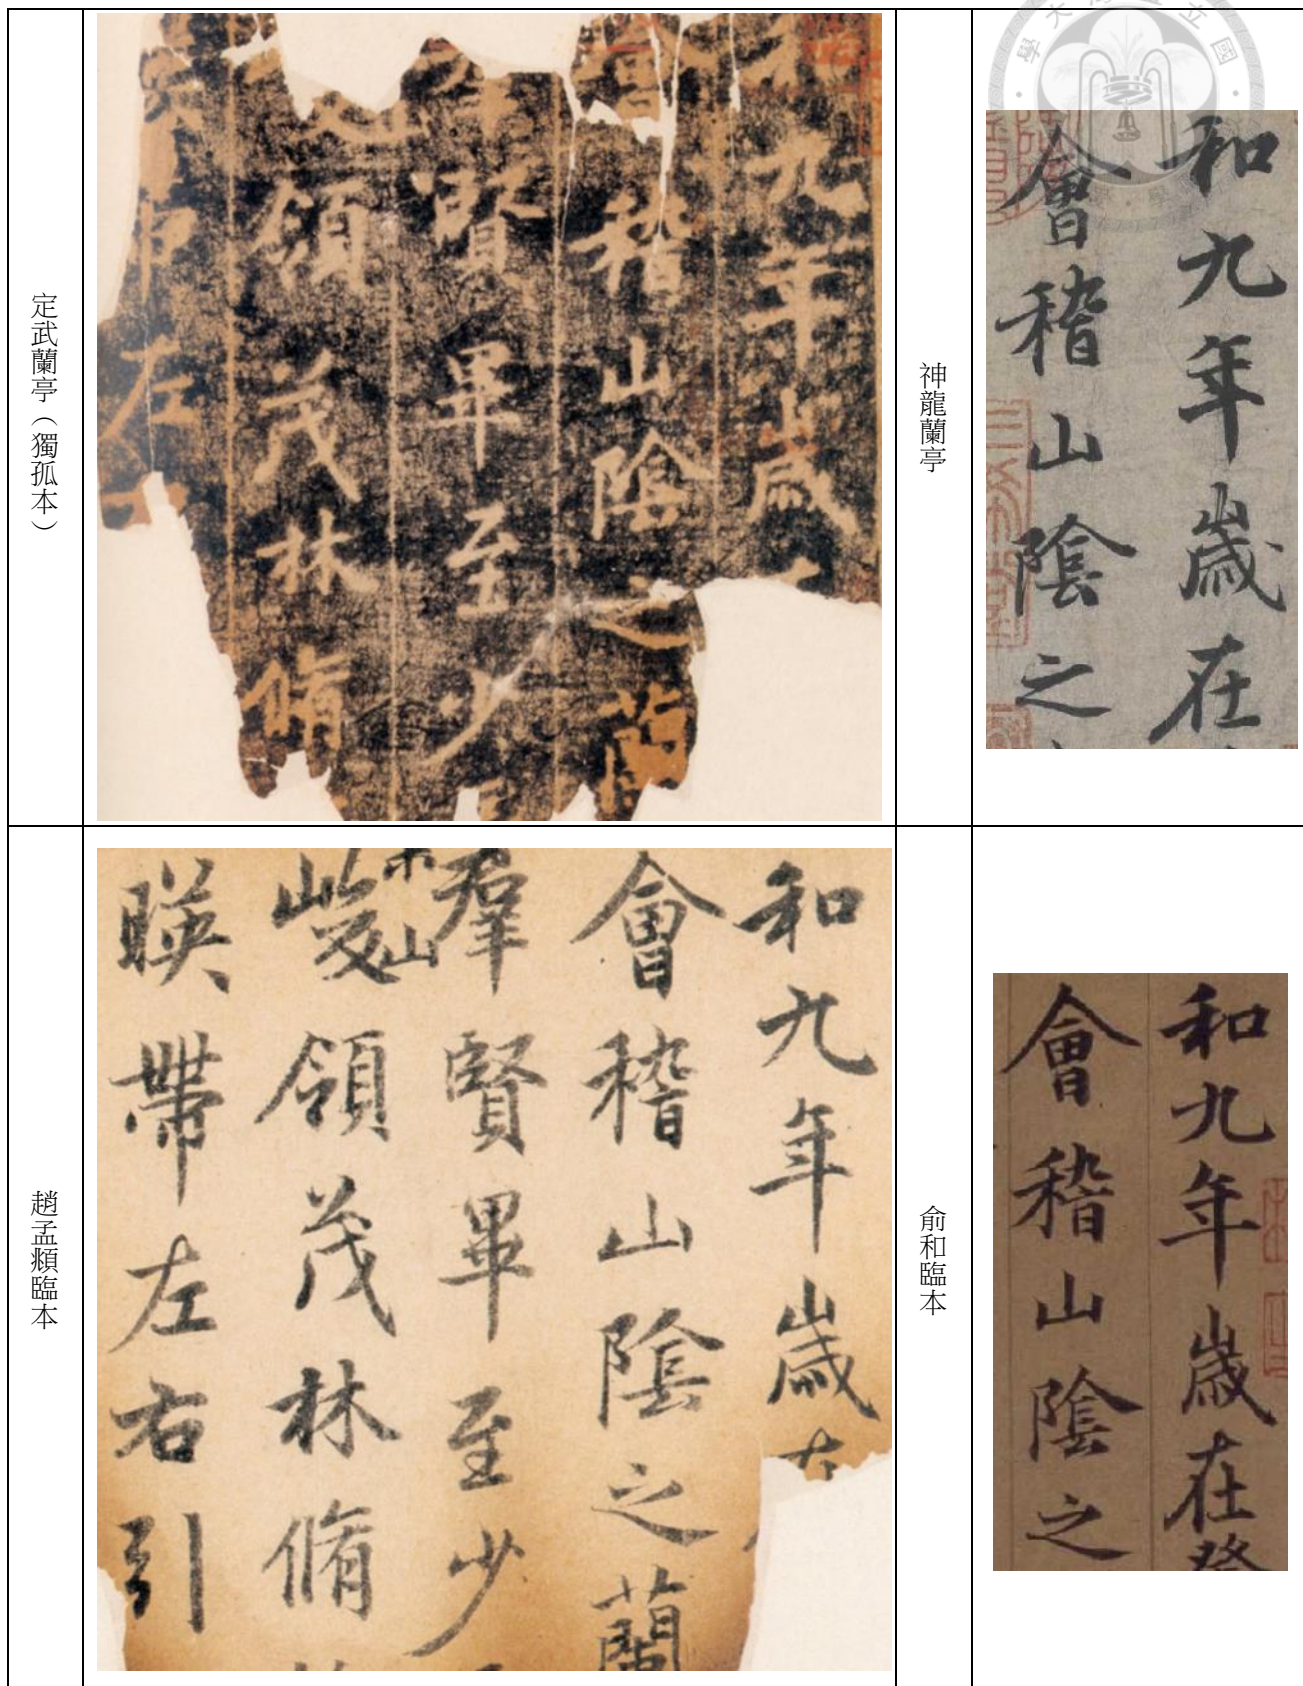 定武蘭亭（獨孤本）
九年歲
稽山陰之蘭
羣賢畢至少
領茂林脩
帶左
神龍蘭亭
和九年歲在
會稽山陰之
趙孟頫臨本
和九年歲在
會稽山陰之蘭
羣賢畢至少
崇山
峻領茂林脩
暎帶左右引
俞和臨本
和九年歲在癸
會稽山陰之